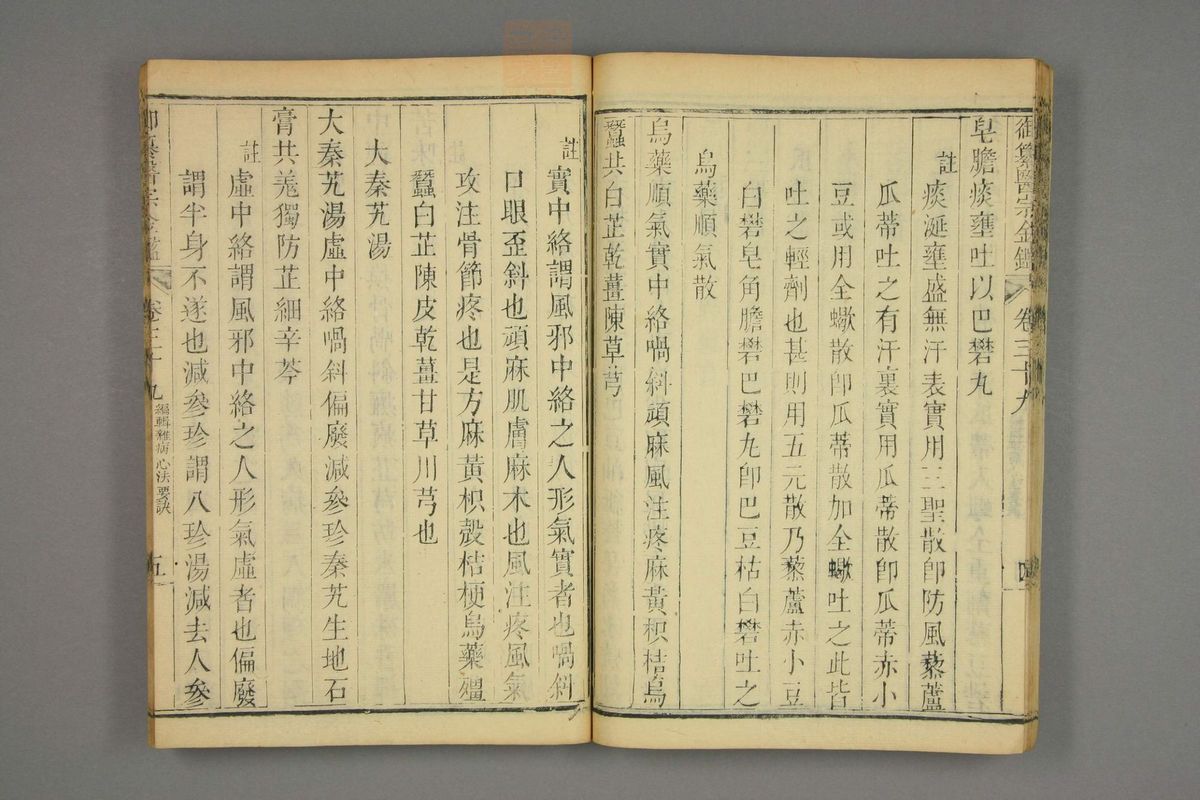 御纂醫宗金鑑 卷三十九 四
皂膽痰壅吐以巴礬丸
註
痰涎壅盛無汗表實用三聖散卽防風藜蘆
瓜蒂吐之有汗裏實用瓜蒂散卽瓜蒂赤小
豆或用全蠍散卽瓜蒂散加全蠍吐之此皆
吐之輕劑也甚則用五元散乃藜蘆赤小豆
白礬皂角膽礬巴礬丸卽巴豆枯白礬吐之
烏藥順氣散
烏藥順氣實中絡喎斜頑麻風注疼麻黃枳桔烏
蠶共白芷乾薑陳草芎
註
實中絡謂風邪中絡之人形氣實者也喎斜
口眼歪斜也頑麻肌膚麻木也風注疼風氣
攻注骨節疼也是方麻黃枳殼桔梗烏藥殭
蠶白芷陳皮乾薑甘草川芎也
大秦艽湯
大秦艽湯虛中絡喎斜偏廢減參珍秦艽生地石
膏共羗獨防芷細辛芩
註
虛中絡謂風邪中絡之人形氣虛者也偏廢
謂半身不遂也減參珍謂八珍湯減去人參
御纂醫宗金鑑 卷三十九 編輯雜病心法要訣 五